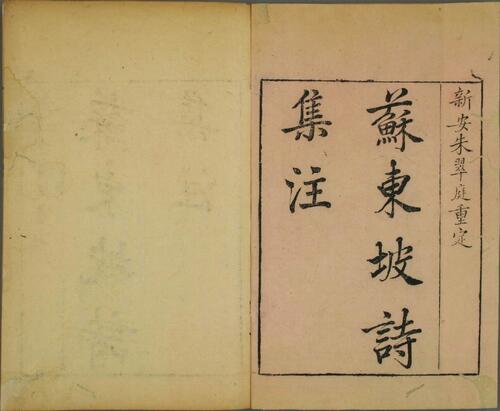 新安朱翠庭重定
蘇東坡詩
集注